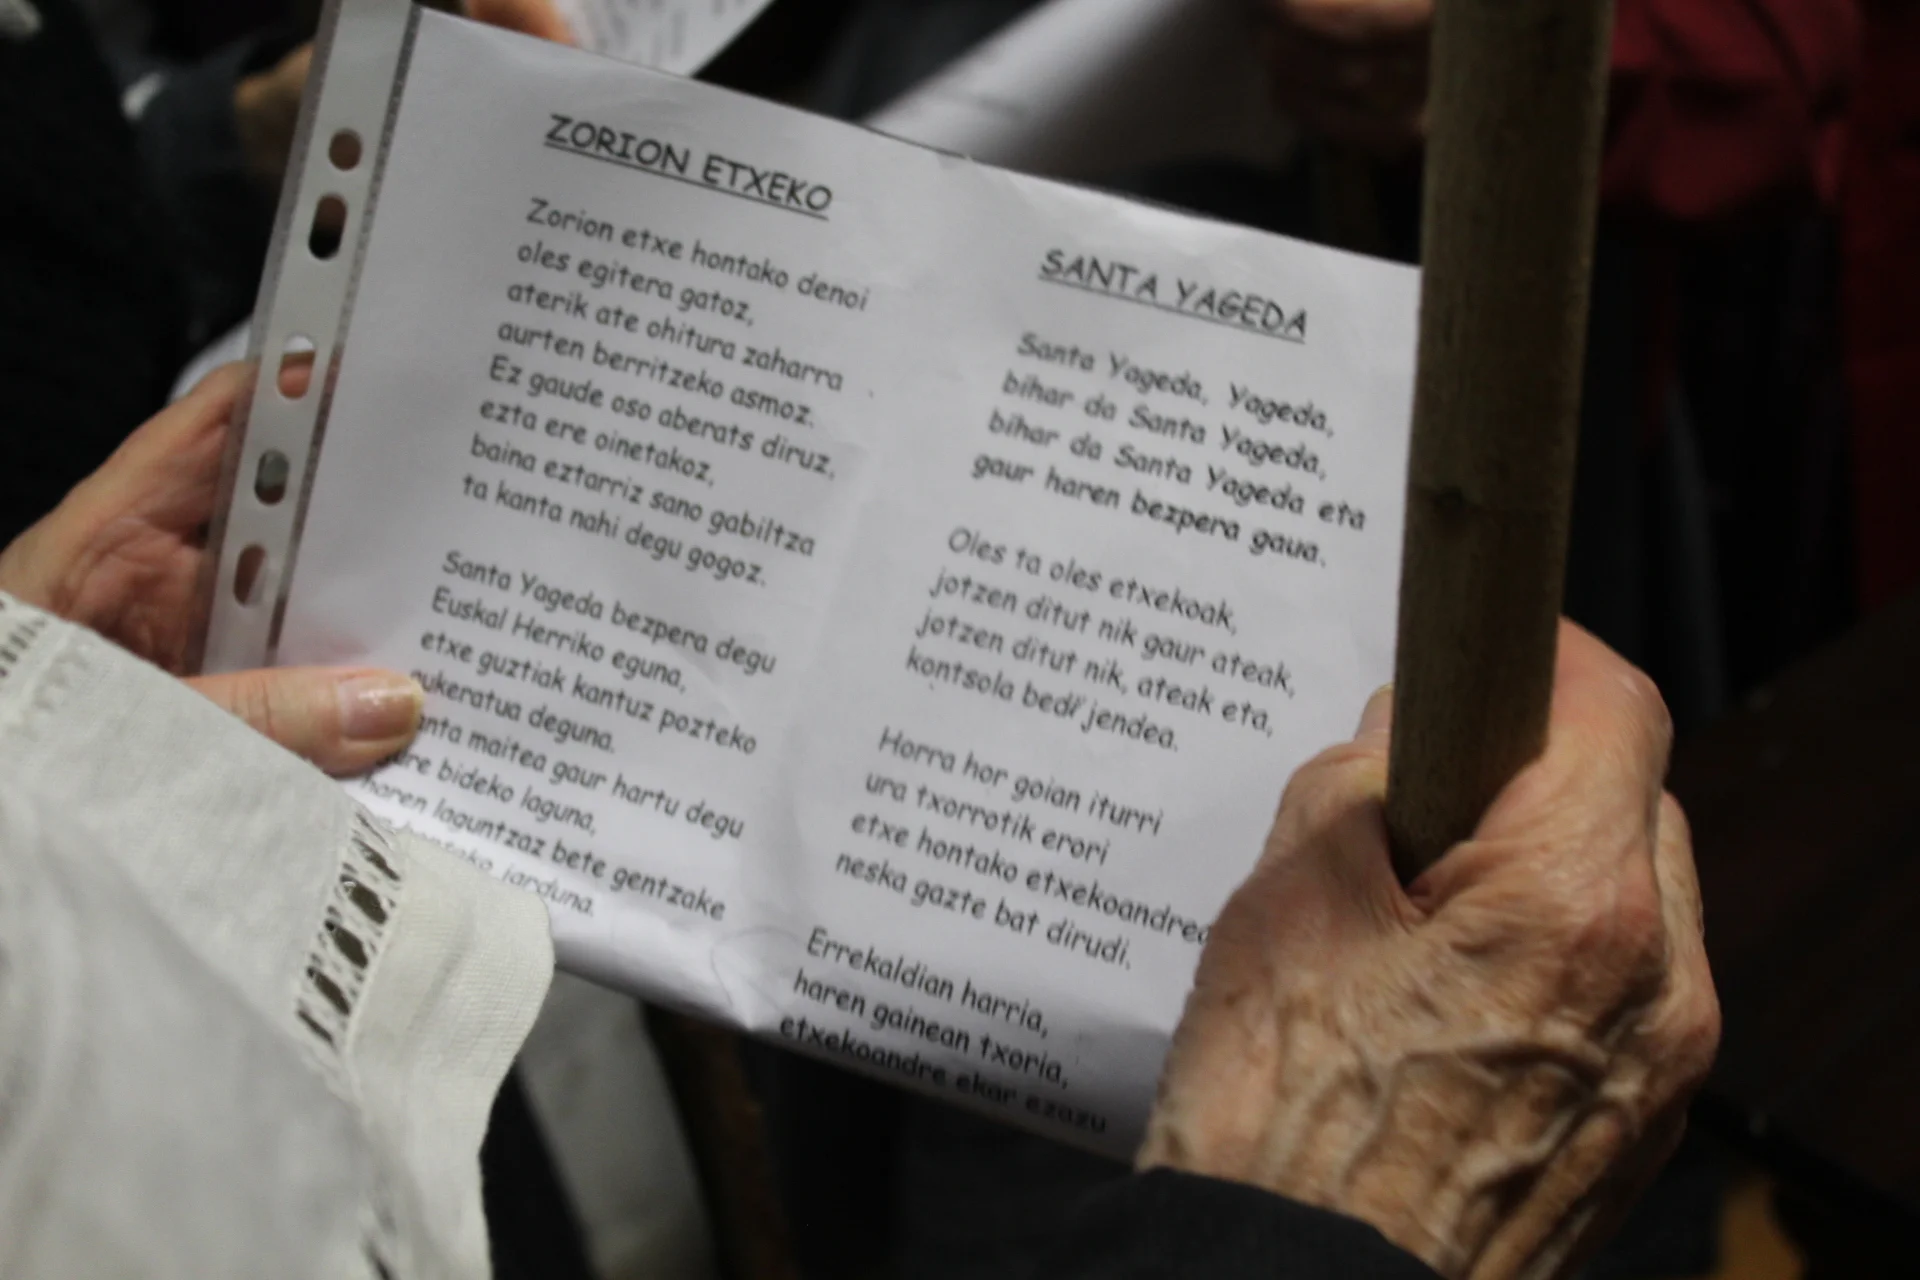 ZORION ETXEKO
Zorion etxe hontako denoi
oles egitera gatoz,
aterik ate ohitura zaharra
aurten berritzeko asmoz.
Ez gaude oso aberats diruz,
ezta ere oinetakoz,
baina eztarriz sano gabiltza
ta kanta nahi degu gogoz.
Santa Yageda bezpera degu
Euskal Herriko eguna,
etxe guztiak kantuz pozteko
aukeratua deguna.
Santa maitea gaur hartu degu
gure bideko laguna,
haren laguntzaz bete gentzake
hontako jarduna.
SANTA YAGEDA
Santa Yageda, Yageda,
bihar da Santa Yageda,
bihar da Santa Yageda eta
gaur haren bezpera gaua.
Oles ta oles etxekoak,
jotzen ditut nik gaur ateak,
jotzen ditut nik, ateak eta,
kontsola bedi jendea.
Horra hor goian iturri
ura txorrotik erori
etxe hontako etxekoandrea
neska gazte bat dirudi.
Errekaldian harria,
haren gainean txoria,
etxekoandre ekar ezazu